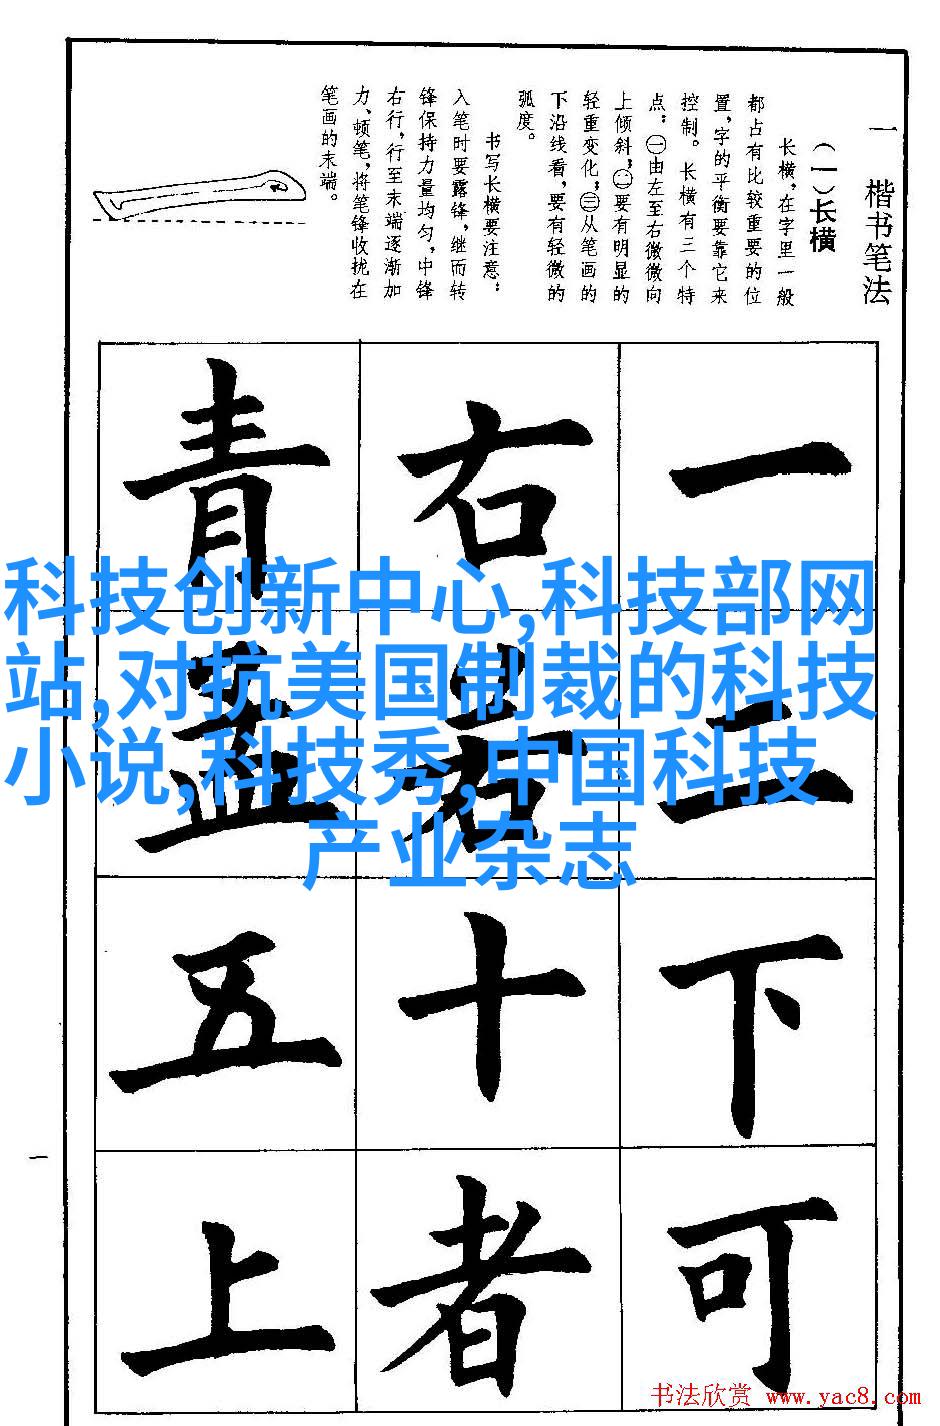 一 楷书笔法
(一)长横
长横,在字里一般
都占有比较重要的位
置,字的平衡要靠它来
控制。长横有三个特
点:㊀由左至右微微向
上倾斜;㊁要有明显的
轻重变化;㊂从笔画的
下沿线看,要有轻微的
弧度。
书写长横要注意:
入笔时要露锋,继而转
锋保持力量均匀,中锋
右行,行至末端逐渐加
力、顿笔,将笔锋收拢在
笔画的末端。
一 二 下 可
右 若 十 者
青 孟 五 上
科技创新中心,科技部网
站,对抗美国制裁的科技
小说,科技秀,中国科技
产业杂志
一
书法欣赏 www.yac8.com